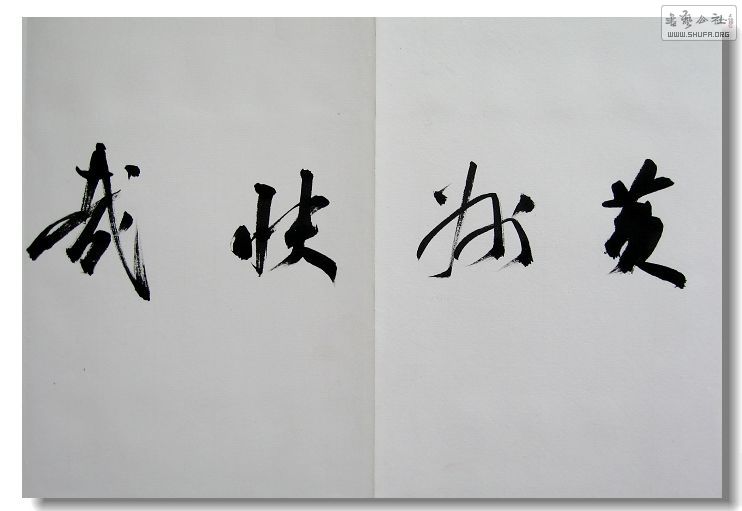 黄州快哉
書藝公社
WWW.SHUFA.ORG